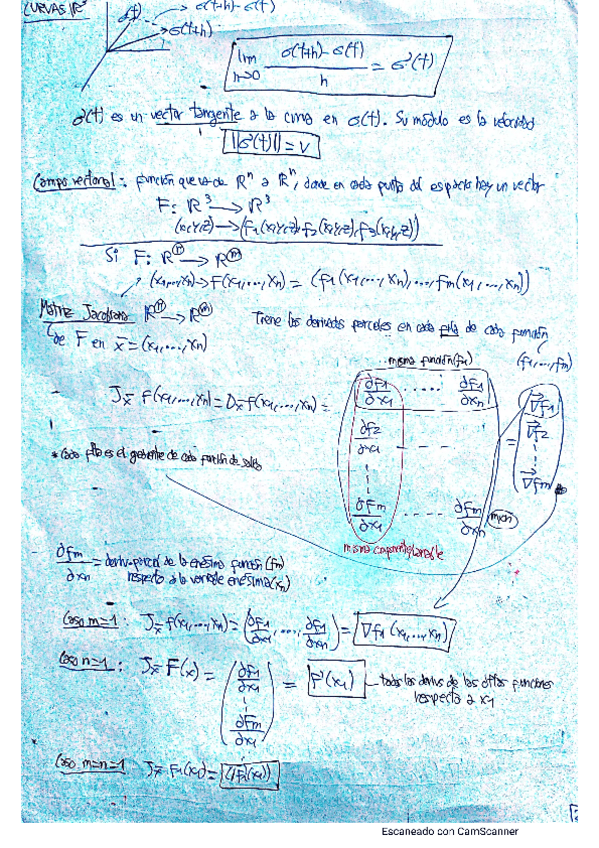 CURVAS ℝ³
σ(t) σ(t+h)-σ(t)
σ(t+h)
lim h→0 (σ(t+h)-σ(t))/h = σ'(t)
σ'(t) es un vector tangente a la curva en σ(t). Su módulo es la velocidad
||σ'(t)|| = v
Campo vectorial: función que va de ℝⁿ a ℝⁿ, donde en cada punto del espacio hay un vector
F: ℝ³ → ℝ³
(x,y,z) → (f1(x,y,z), f2(x,y,z), f3(x,y,z))
Si F: ℝⁿ → ℝᵐ
(x1,...,xn) → F(x1,...,xn) = (f1(x1,...,xn),...,fm(x1,...,xn))
Matriz Jacobiana ℝⁿ → ℝᵐ Tiene las derivadas parciales en cada fila de cada función
de F en x̄ = (x1,...,xn) (f1,...,fm)
misma función (f1)
Jx̄ f(x1,...,xn) = Dx̄ f(x1,...,xn) =
∂f1/∂x1 ..... ∂f1/∂xn ∇f1
∂f2/∂x1 - - - = ∇f2
∂fm/∂x1 .... ∂fm/∂xn mxn ∇fm
* Cada fila es el gradiente de cada función de salida
misma componente/variable
∂fm/∂xn = deriv. parcial de la enésima función (fm)
respecto a la variable enésima (xn)
Caso m=1: Jx̄ f(x1,...,xn) = (∂f1/∂x1,...,∂f1/∂xn) = ∇f1(x1,...,xn)
Caso n=1: Jx̄ F(x) = (∂f1/∂x1 ∂fm/∂x1) = F'(x1) todas las derivs de las distas funciones
respecto a x1
Caso m=n=1 Jx̄ F1(x1) =
Escaneado con CamScanner